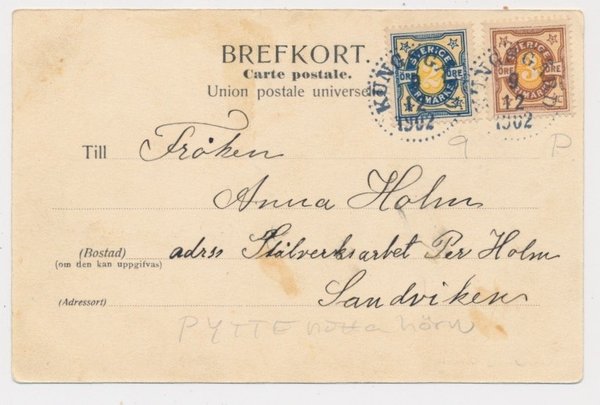 BREFKORT.
Carte postale.
Union postale universe
SVERIGE
ÖRE 2 ÖRE
FRIMÄRKE
SVERIGE
ÖRE 3 ÖRE
FRIMÄRKE
KUNG
12
1902
KUNG
12
1902
9 P
Till Fröken
Anna Holm
(Bostad) adrss Stålverksarbet Per Holm
(om den kan uppgifvas)
Sandviken
(Adressort)
PYTTE hörn